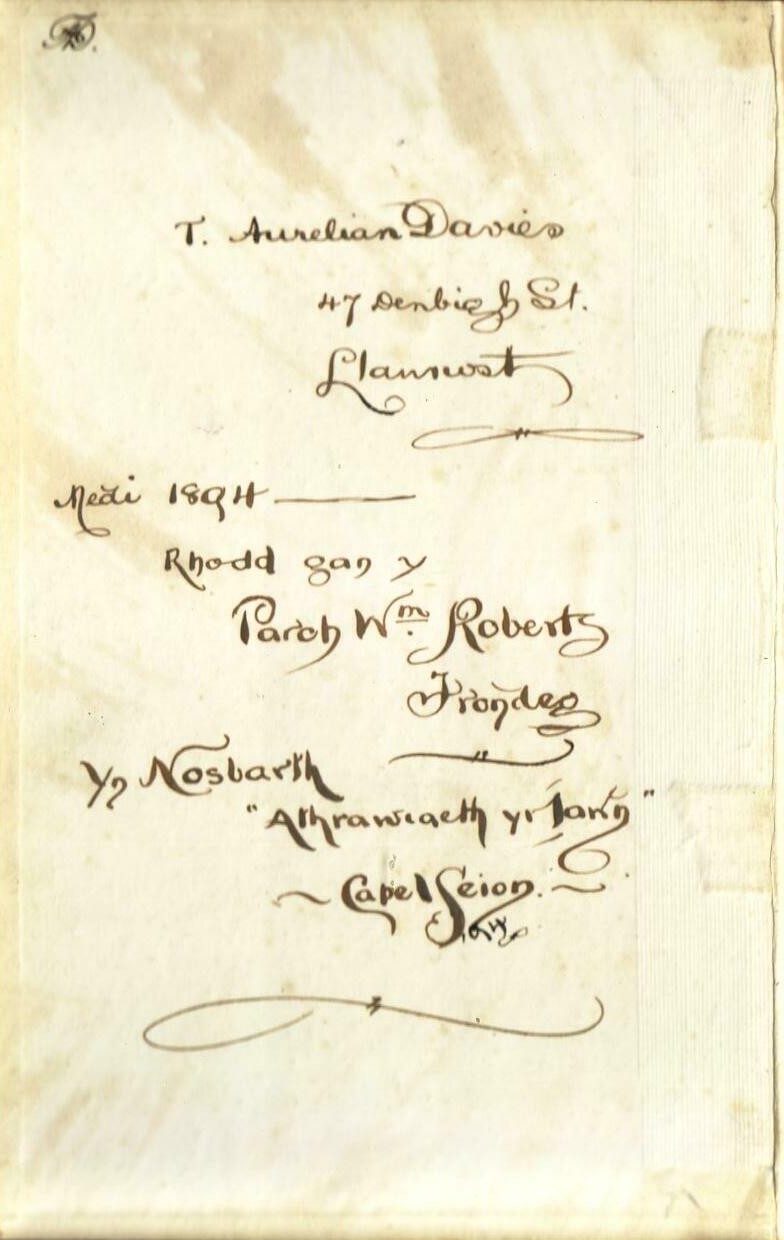 T. Aurelian Davies
47 Denbigh St.
Llanrwst
Medi 1894
Rhodd gan y
Parch Wm. Roberts
Frondeg
Yn Nosbarth
"Athrawiaeth yr Iawn"
~ Capel Seion. ~